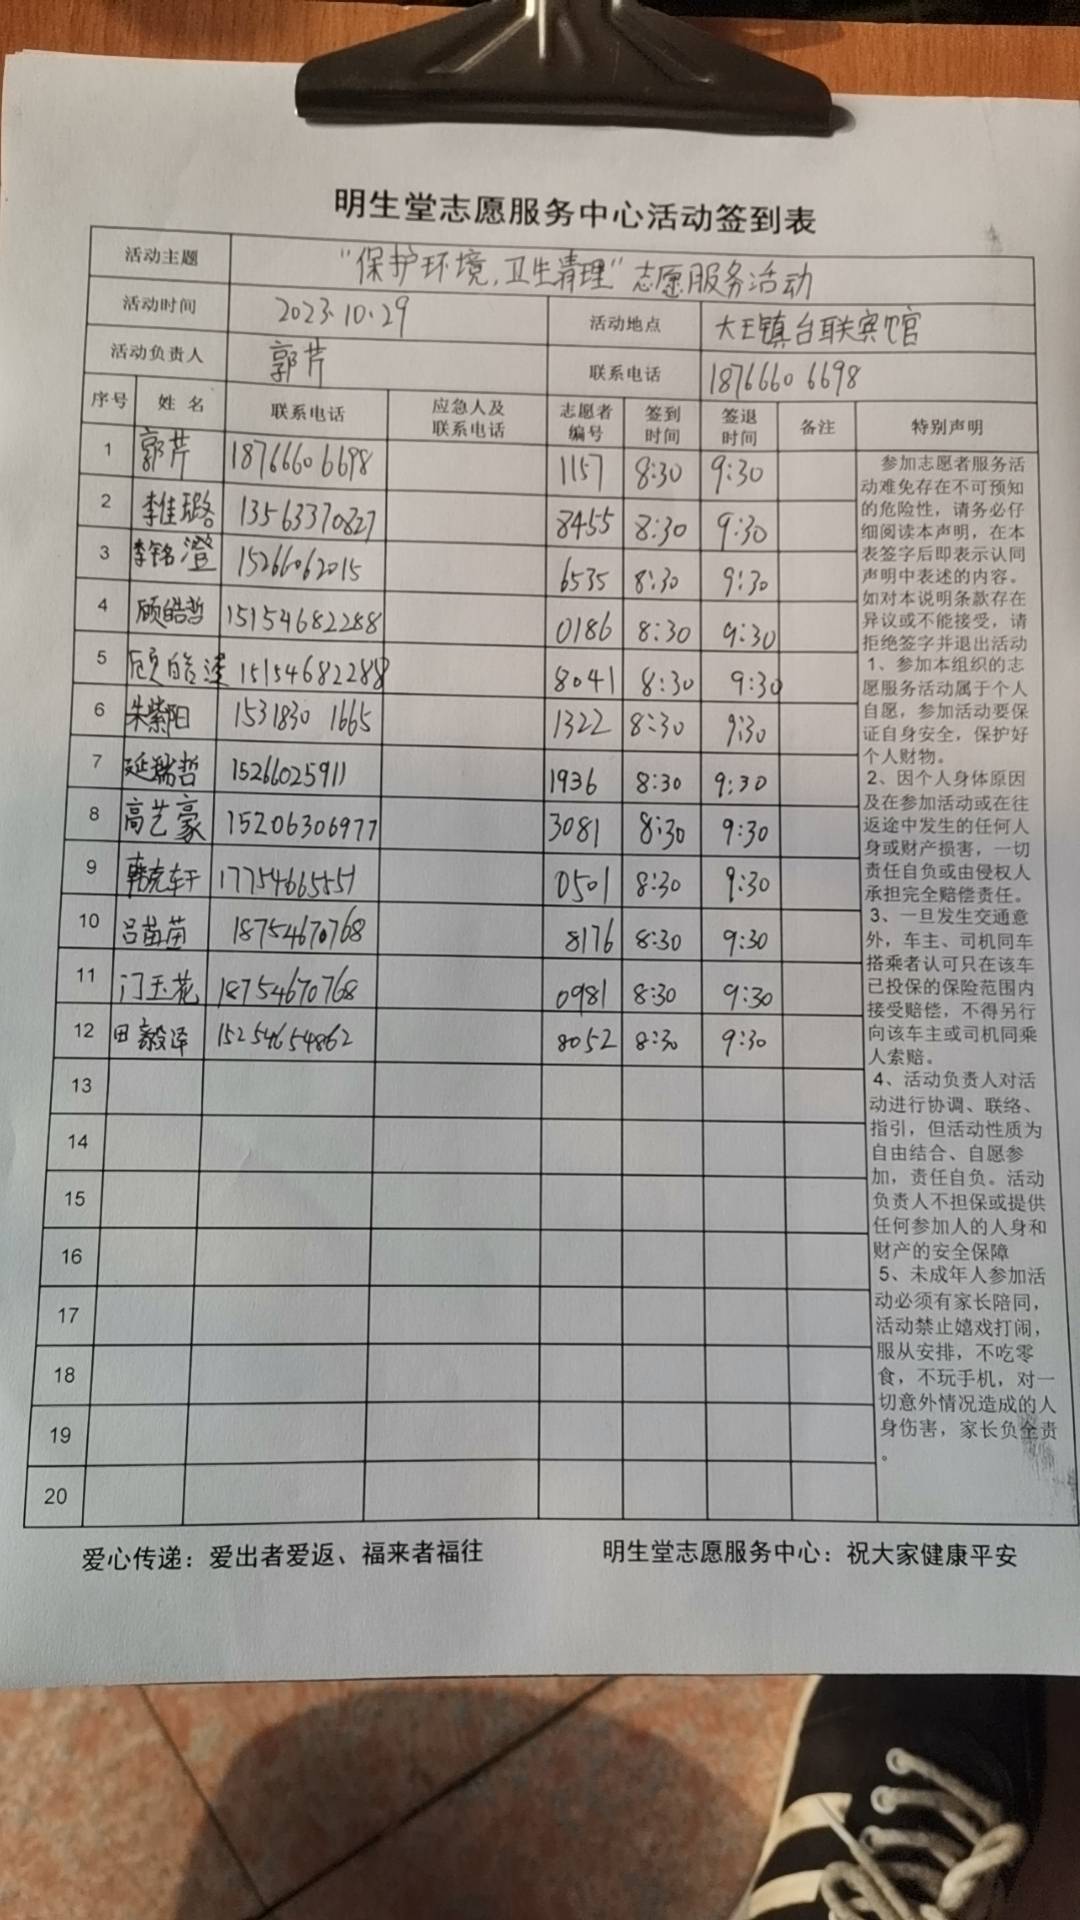 明生堂志愿服务中心活动签到表
活动主题 "保护环境,卫生清理"志愿服务活动
活动时间 2023.10.29 活动地点 大王镇台联宾馆
活动负责人 郭芹 联系电话 18766606698
序号 姓名 联系电话 应急人及联系电话 志愿者编号 签到时间 签退时间 备注 特别声明
1 郭芹 18766606698 1157 8:30 9:30
2 李佳璐 13563370827 8455 8:30 9:30
3 李铭澄 15266062015 6535 8:30 9:30
4 顾皓哲 15154682288 0186 8:30 9:30
5 15154682288 8041 8:30 9:30
6 朱紫阳 15318301665 1322 8:30 9:30
7 延瑞哲 15266025911 1936 8:30 9:30
8 高艺豪 15206306977 3081 8:30 9:30
9 韩克轩 17754665551 0501 8:30 9:30
10 吕苗苗 18754670768 8176 8:30 9:30
11 门玉花 18754670768 0981 8:30 9:30
12 田毅泽 15254654862 8052 8:30 9:30
13
14
15
16
17
18
19
20
参加志愿者服务活
动难免存在不可预知
的危险性，请务必仔
细阅读本声明，在本
表签字后即表示认同
声明中表述的内容。
如对本说明条款存在
异议或不能接受，请
拒绝签字并退出活动
1、参加本组织的志
愿服务活动属于个人
自愿，参加活动要保
证自身安全，保护好
个人财物。
2、因个人身体原因
及在参加活动或在往
返途中发生的任何人
身或财产损害，一切
责任自负或由侵权人
承担完全赔偿责任。
3、一旦发生交通意
外，车主、司机同车
搭乘者认可只在该车
已投保的保险范围内
接受赔偿，不得另行
向该车主或司机同乘
人索赔。
4、活动负责人对活
动进行协调、联络、
指引，但活动性质为
自由结合、自愿参
加，责任自负。活动
负责人不担保或提供
任何参加人的人身和
财产的安全保障
5、未成年人参加活
动必须有家长陪同，
活动禁止嬉戏打闹，
服从安排，不吃零
食，不玩手机，对一
切意外情况造成的人
身伤害，家长负全责
。
爱心传递：爱出者爱返、福来者福往 明生堂志愿服务中心：祝大家健康平安